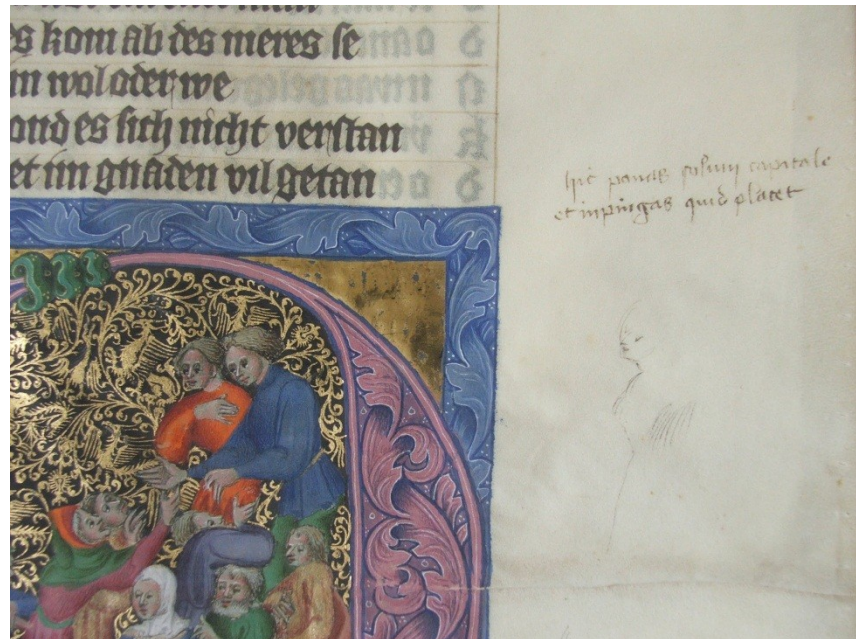 es kom ab des meres se
n wol oder we
ond es sich nicht verstan
et im gnaden vil getan
hic ponas solum capitale
et inpingas quid placet